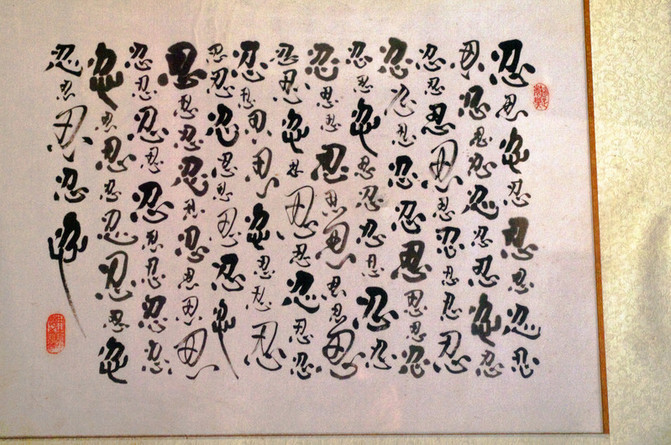 忍忍忍忍忍忍忍忍
忍忍忍忍忍忍忍忍忍
忍忍忍忍忍忍忍忍忍
忍忍忍忍忍忍忍忍忍
忍忍忍忍忍忍忍忍忍
忍忍忍忍忍忍忍忍忍
忍忍忍忍忍忍忍忍忍
忍忍忍忍忍忍忍忍
忍忍忍忍忍忍忍忍
忍忍忍忍忍忍忍忍忍
忍忍忍忍忍忍忍忍忍
忍忍忍忍忍忍忍忍
忍忍忍忍忍